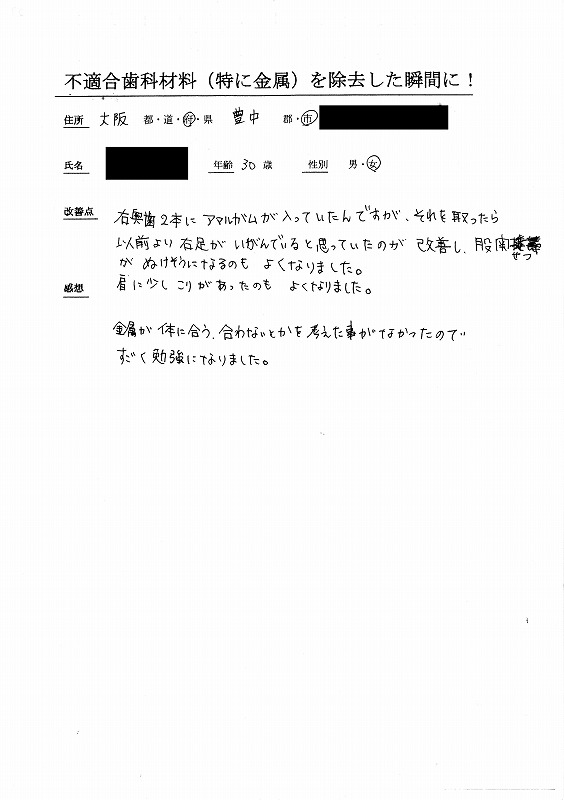 不適合歯科材料（特に金属）を除去した瞬間に！
住所 大阪 都・道・府・県 豊中 郡・市
氏名 年齢 30 歳 性別 男・女
改善点 右奥歯2本に アマルガムが 入っていたんですが、それを 取ったら
以前より 右足が いがんでいると 思っていたのが 改善し、股関せつ
が ぬけそうになるのも よくなりました。
肩に少し こりがあったのも よくなりました。
感想
金属が 体に合う、合わないとかを 考えた事がなかったので
すごく 勉強になりました。